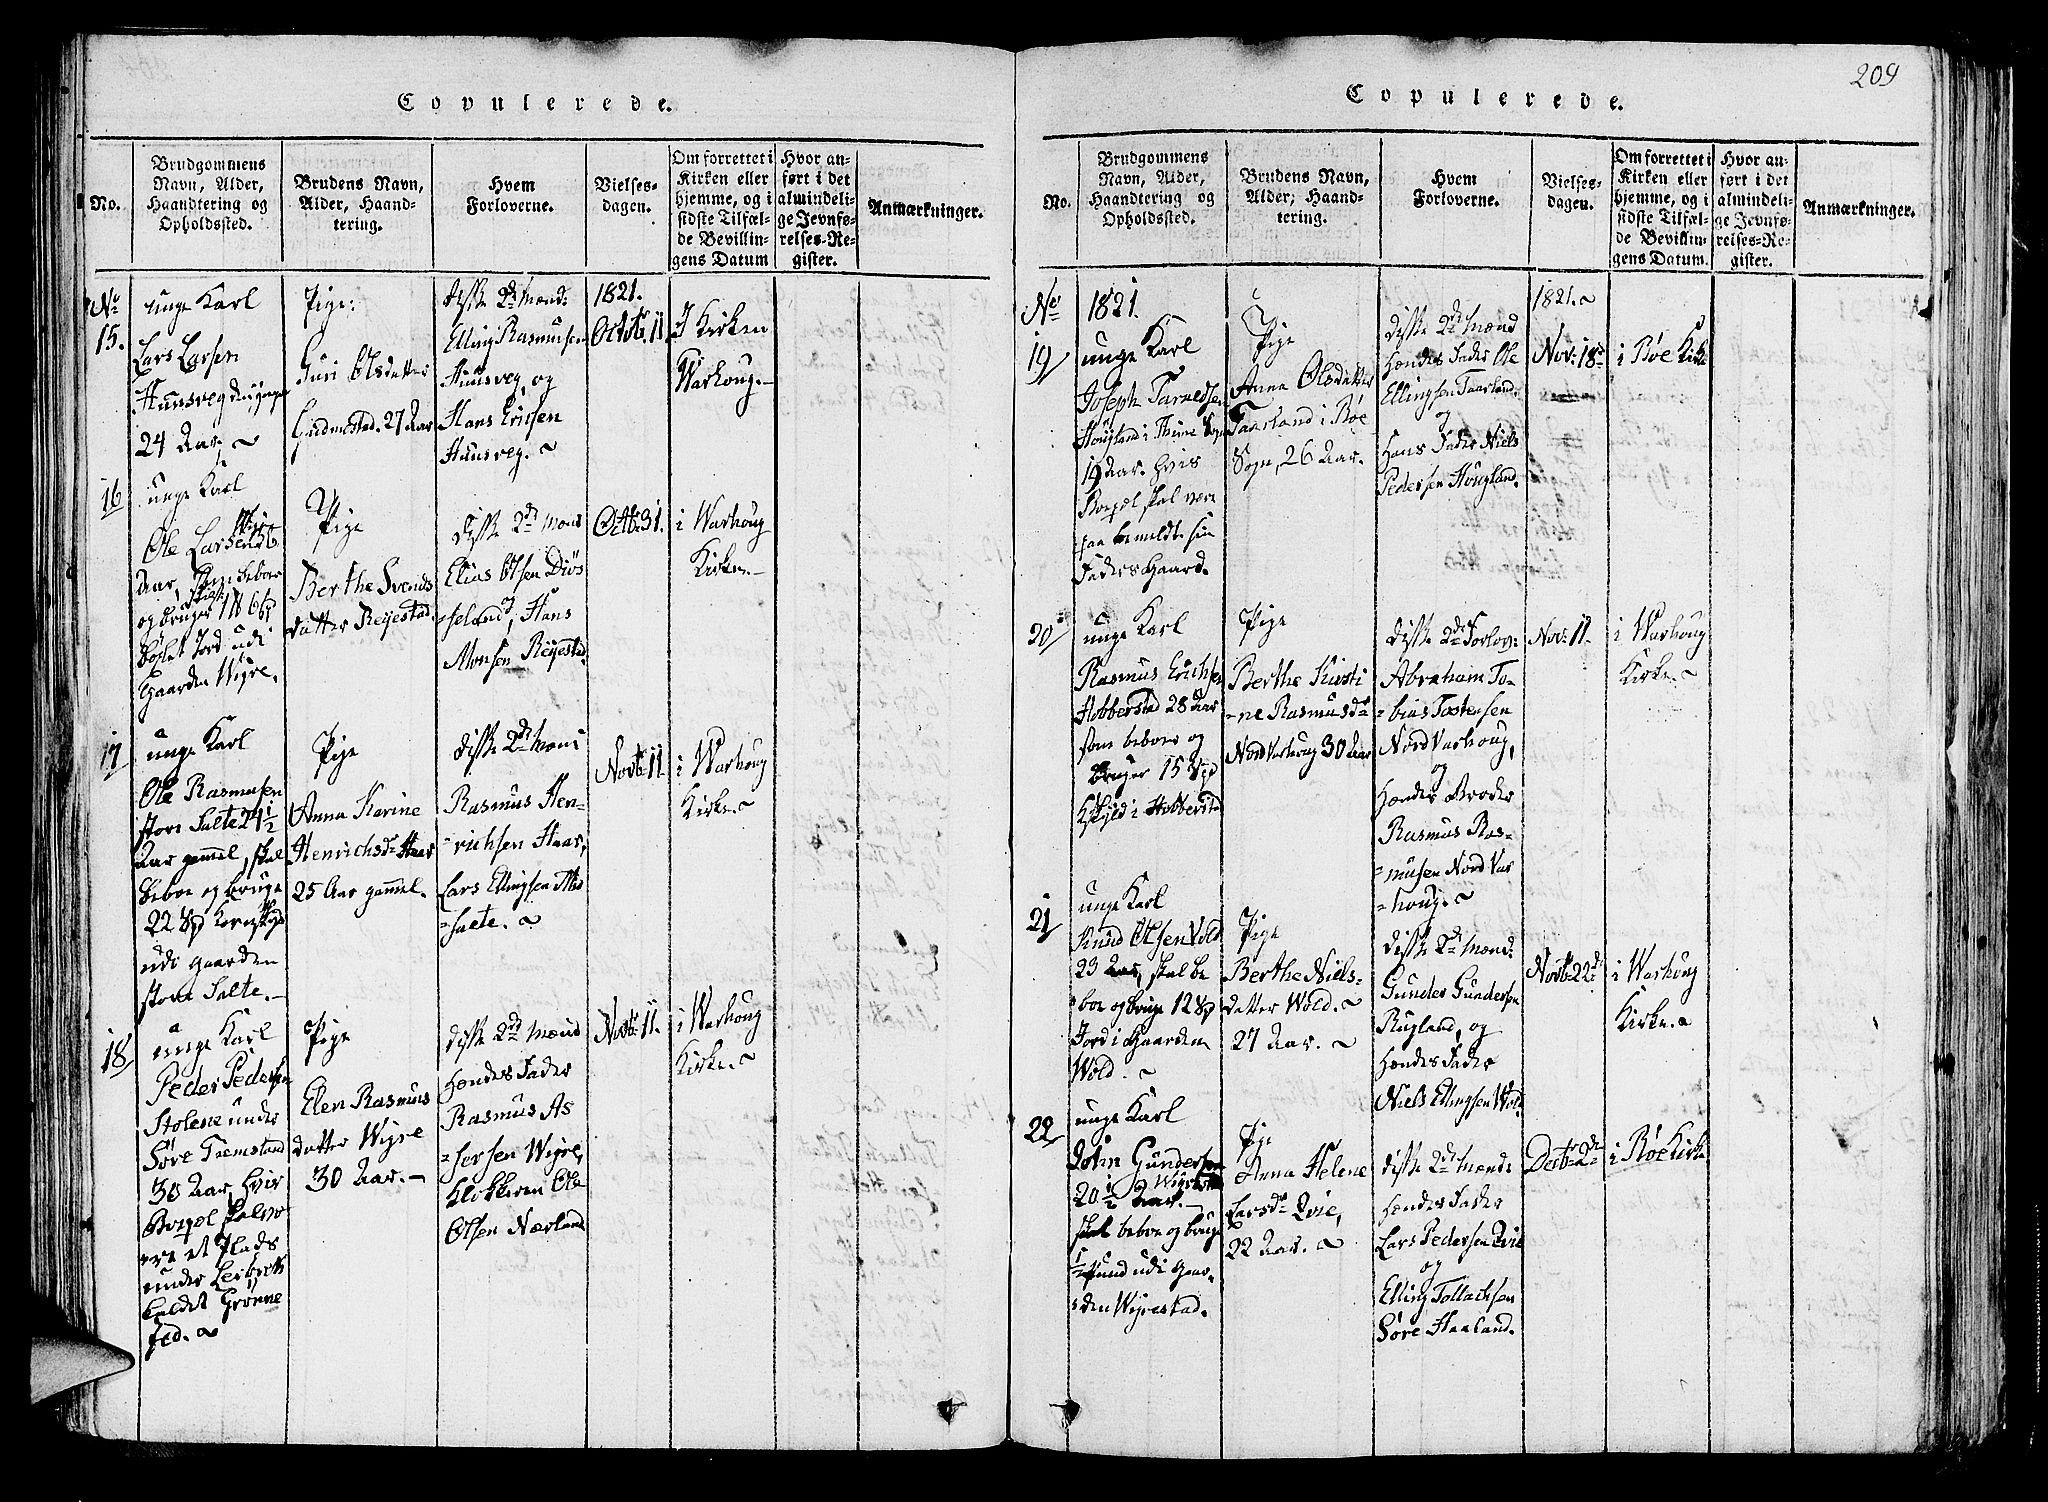 Copulerede.
No.
Brudgommens
Navn, Alder,
Haandtering og
Opholdssted.
Brudens Navn,
Alder, Haand-
tering.
Hvem
Forloverne.
Vielses-
dagen.
Om forrettet i
Kirken eller
hjemme, og i
sidste Tilfæl-
de Bevillin-
gens Datum
Hvor an-
ført i det
almindeli-
ge Jevnfø-
relses-Re-
gister.
Anmærkninger.
No
15.
unge Karl
Lars Larsen
Huusveg
24 Aar,
Pige:
Guri Olsdatter
Gudmestad. 27 Aar
diske 2de Mænd:
Elling Rasmusen
Huusveg, og
Hans Ericsen
Huusveg.
1821.
Octobr. 11.
I Kirken
Warhoug.
16
unge Karl
Ole Larsen Wigre
26
Aar, som beboer
og bruger
bøxlet Jord udi
Gaarden Wigre.
Pige
Berthe Svends
datter Reyestad.
diske 2de Mænd
Elias Olsen Diøs
=seland, Hans
Monsen Reyestad.
Octb. 31.
i Warhoug
Kirke.
17
unge Karl
Ole Rasmusen
store Salte 24 1/2
Aar gammel, skal
beboe og bruge
22
udi Gaarden
store Salte.
Pige
Anna Karine
Henrichsdr Haar
25 Aar gammel.
diske 2de Mænd
Rasmus Hen-
=richsen Haar,
Lars Ellingsen
=Salte.
Novbr. 11.
i Warhoug
Kirke.
18
unge Karl
Peder Pedersen
Stolene under
Søre
30 Aar, hvis
Bopæl skal væ
ere et Plads
under
kaldet Grønne
fed.
Pige
Elen Rasmus
datter Wigre
30 Aar.
diske 2de Mænd
Hendes Fader
Rasmus As
=sersen Wigre,
Klokkeren Ole
Olsen Nærland
Novbr. 11.
i Warhoug
Kirke.
209
Copulerede.
No.
Brudgommens
Navn, Alder,
Haandtering og
Opholdssted.
Brudens Navn,
Alder, Haand-
tering.
Hvem
Forloverne.
Vielses-
dagen.
Om forrettet i
Kirken eller
hjemme, og i
sidste Tilfæl-
de Bevillin-
gens Datum.
Hvor an-
ført i det
almindeli-
ge Jevnfø-
relses-Re-
gister.
Anmærkninger.
No
1821.
19
unge Karl
Joseph
Hougland i Thime Sogn
19 Aar. hvis
Bopæl skal være
paa bemeldte sin
Faders Gaard.
Pige
Anna Olsdatter
Taarland i Bøe
Sogn, 26 Aar.
diske 2de Mænd
Hendes Fader Ole
Ellingsen Taarland.
og
Hans Fader Niels
Pedersen Hougland.
1821.
Nov. 18de
i Bøe Kirke
20
unge Karl
Rasmus Erichsen
Hobberstad 28 Aar
som beboer og
bruger 15
i Hobberstad
Pige
Berthe Kirsti
=ne Rasmusdr
Nord Varhoug 30 Aar
diske 2de Forlov:
Abraham To-
=bias Tostensen
Nord Varhoug,
og
Hendes Broder
Rasmus Ras-
=musen Nord Var
=houg.
Nov. 11.
i Warhoug
Kirke.
21
unge Karl
Knud Olsen Vold
23 Aar, skal be
boe og bruge 12
Jord i Gaarden
Wold.
Pige
Berthe Niels-
datter Wold.
27 Aar.
diske 2de Mænd:
Gunder Gundersen
Rugland, og
Hendes Fader
Niels Ellingsen Wold
Novbr. 22de
i Warhoug
Kirke.
22
unge Karl
John Gundersen
Wigrestad
20 1/2 Aar.
skal beboe og bruge
1/2 pund udi Gaar-
=den Wigrestad.
Pige
Anna Helene
Larsdr Qvie,
22 Aar.
diske 2de Mænd:
Hendes Fader
Lars Pedersen Qvie
og
Elling Tollachsen
Søre Haaland.
Decbr. 2de
i Bøe Kirke